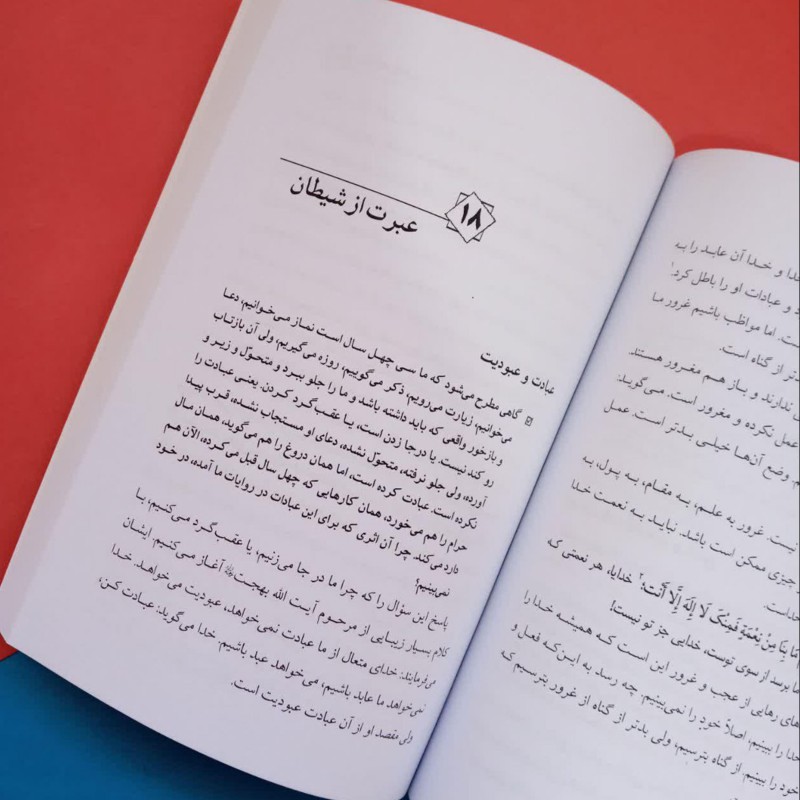 و خدا آن عابد را به
و عبادات او را باطل کرد!
اما مواظب باشیم غرور ما
از گناه است.
ندارند و باز هم مغرور هستند.
عمل نکرده و مغرور است. می‌گوید:
وضع آن‌ها خیلی بدتر است. عمل
نیست. غرور به علم، به مقام، به پول، به
چیزی ممکن است باشد. نباید به نعمت خدا
خداست.
مَا بِنَا مِنْ نِعْمَةٍ فَمِنْکَ لَا إِلَهَ إِلَّا أَنْتَ؛ خدایا، هر نعمتی که
ما برسد از سوی توست، خدایی جز تو نیست!
های رهایی از عجب و غرور این است که همیشه خدا را
خدا را ببینیم، اصلاً خود را نمی‌بینیم. چه رسد به این‌که فعل و
خود را ببینیم از گناه بترسیم، ولی بدتر از گناه از غرور بترسیم که
۱۸
عبرت از شیطان
عبادت و عبودیت
گاهی مطرح می‌شود که ما سی چهل سال است نماز می‌خوانیم، دعا
می‌خوانیم، زیارت می‌رویم، ذکر می‌گوییم، روزه می‌گیریم، ولی آن بازتاب
و بازخور واقعی که باید داشته باشد و ما را جلو ببرد و متحوّل و زیر و
رو کند نیست. یا درجا زدن است، یا عقب‌گرد کردن. یعنی عبادت را
آورده، ولی جلو نرفته، متحوّل نشده، دعای او مستجاب نشده، قرب پیدا
نکرده است. عبادت کرده است، اما همان دروغ را هم می‌گوید، همان مال
حرام را هم می‌خورد، همان کارهایی که چهل سال قبل می‌کرده، الآن هم
دارد می‌کند. چرا آن اثری که برای این عبادات در روایات ما آمده، در خود
نمی‌بینیم؟
پاسخ این سؤال را که چرا ما در جا می‌زنیم، یا عقب‌گرد می‌کنیم، با
کلام بسیار زیبایی از مرحوم آیت الله بهجت آغاز می‌کنیم. ایشان
می‌فرمایند: خدای متعال از ما عبادت نمی‌خواهد، عبودیت می‌خواهد. خدا
نمی‌خواهد ما عابد باشیم، می‌خواهد عبد باشیم. خدا می‌گوید: عبادت کن،
ولی مقصد او از آن عبادت عبودیت است.